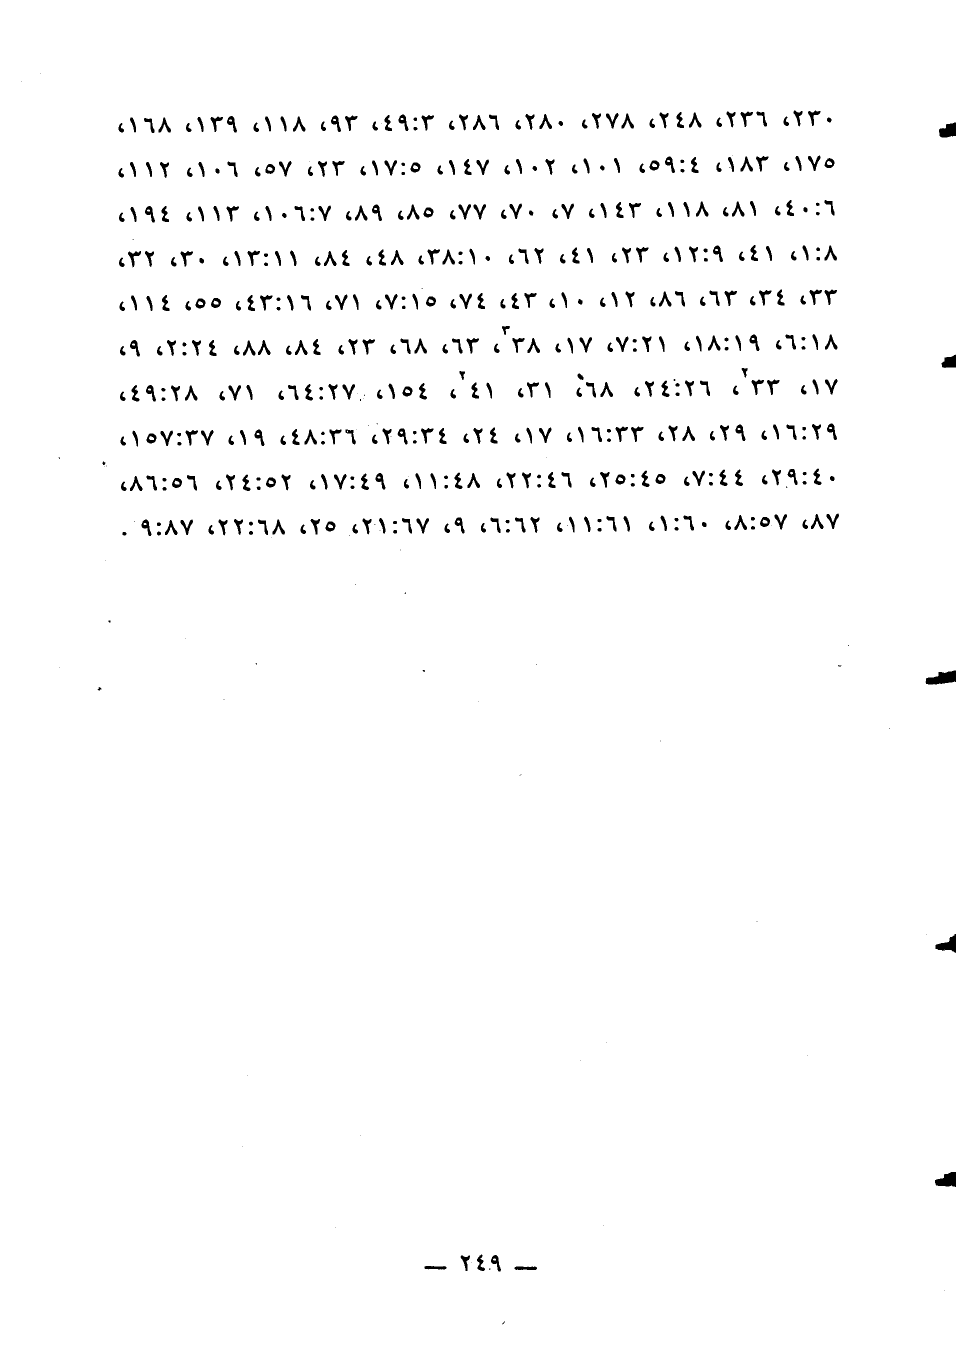 ٢٣٠، ٢٣٦، ٢٤٨، ٢٧٨، ٢٨٠، ٢٨٦، ٤٩:٣، ٩٣، ١١٨، ١٣٩، ١٦٨،
١٧٥، ١٨٣، ٥٩:٤، ١٠١، ١٠٢، ١٤٧، ١٧:٥، ٢٣، ٥٧، ١٠٦، ١١٢،
٤٠:٦، ٨١، ١١٨، ١٤٣، ٧، ٧٠، ٧٧، ٨٥، ٨٩، ١٠٦:٧، ١١٣، ١٩٤،
١:٨، ٤١، ١٢:٩، ٢٣، ٤١، ٦٢، ٣٨:١٠، ٤٨، ٨٤، ١٣:١١، ٣٠، ٣٢،
٣٣، ٣٤، ٦٣، ٨٦، ١٢، ١٠، ٤٣، ٧٤، ٧:١٥، ٧١، ٤٣:١٦، ٥٥، ١١٤،
٦:١٨، ١٨:١٩، ٧:٢١، ١٧، ٣٨٣، ٦٣، ٦٨، ٢٣، ٨٤، ٨٨، ٢:٢٤، ٩،
١٧، ٣٣٢، ٢٤:٢٦، ٦٨، ٣١، ٤١٢، ١٥٤، ٦٤:٢٧، ٧١، ٤٩:٢٨،
١٦:٢٩، ٢٩، ٢٨، ١٦:٣٣، ١٧، ٢٤، ٢٩:٣٤، ٤٨:٣٦، ١٩، ١٥٧:٣٧،
٢٩:٤٠، ٧:٤٤، ٢٥:٤٥، ٢٢:٤٦، ١١:٤٨، ١٧:٤٩، ٢٤:٥٢، ٨٦:٥٦،
٨٧، ٨:٥٧، ١:٦٠، ١١:٦١، ٦:٦٢، ٩، ٢١:٦٧، ٢٥، ٢٢:٦٨، ٩:٨٧ .
— ٢٤٩ —